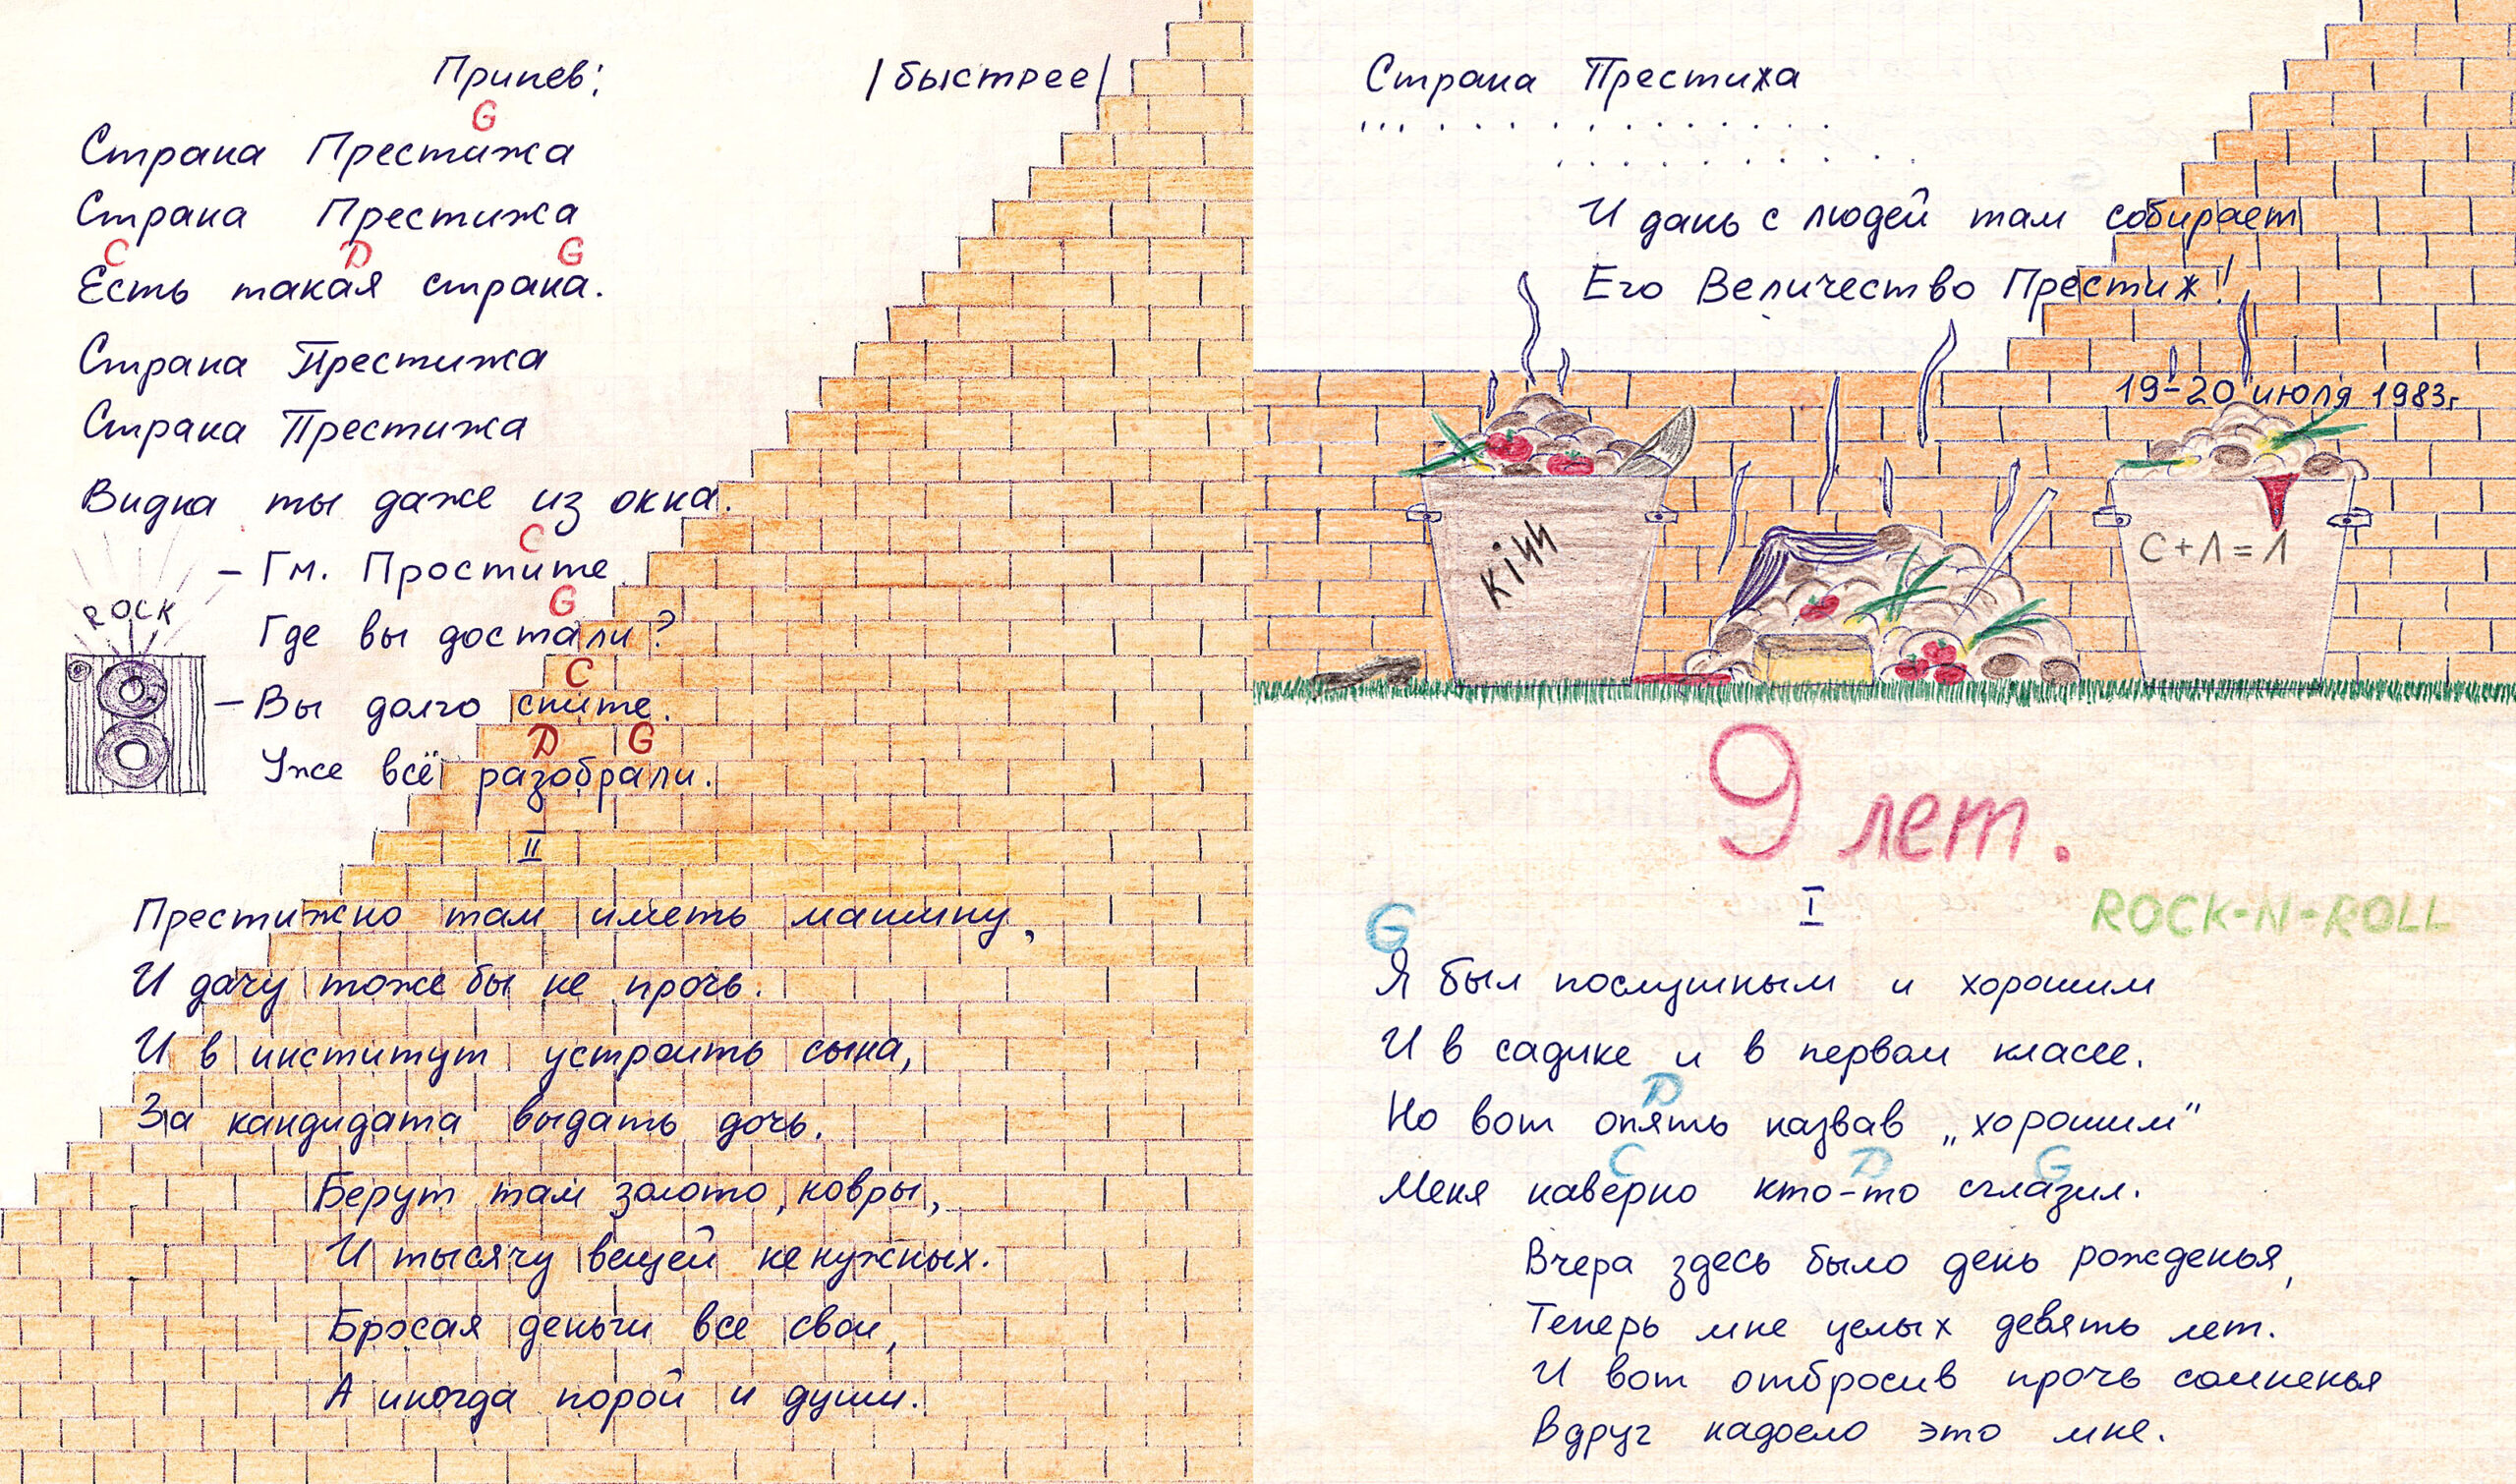 Припев: /быстрее/
G
Страна Престижа
Страна Престижа
C D G
Есть такая страна.
Страна Престижа
Страна Престижа
Видна ты даже из окна.
C
– Гм. Простите
G
Где вы достали?
ROCK
C
– Вы долго спите.
D G
Уже всё разобрали.
II
Престижно там иметь машину,
И дачу тоже бы не прочь.
И в институт устроить сына,
За кандидата выдать дочь.
Берут там золото, ковры,
И тысячу вещей ненужных.
Бросая деньги все свои,
А иногда порой и души.
Страна Престижа
... . . . . . . . . . . . .
. . . . . . . . . .
И дань с людей там собирает
Его Величество Престиж!
19-20 июля 1983г.
С+Л=Л
9 лет.
I
ROCK-N-ROLL
G
Я был послушным и хорошим
И в садике и в первом классе.
D
Но вот опять назвав „хорошим"
C D G
Меня наверно кто-то сглазил.
Вчера здесь было день рожденья,
Теперь мне целых девять лет.
И вот отбросив прочь сомненья
Вдруг надоело это мне.